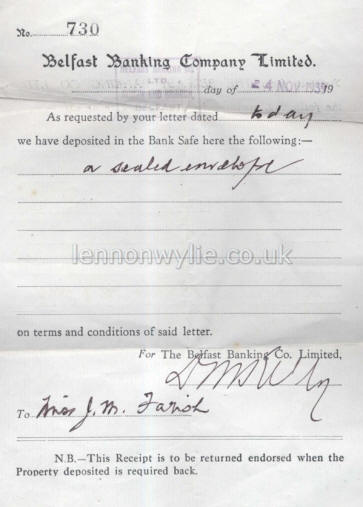 No. 730
Belfast Banking Company Limited.
day of 24 NOV 1939 19
As requested by your letter dated to day
we have deposited in the Bank Safe here the following:—
a sealed envelope
lennonwylie.co.uk
on terms and conditions of said letter.
For The Belfast Banking Co. Limited,
To Miss J. M. Farish
N.B.—This Receipt is to be returned endorsed when the
Property deposited is required back.